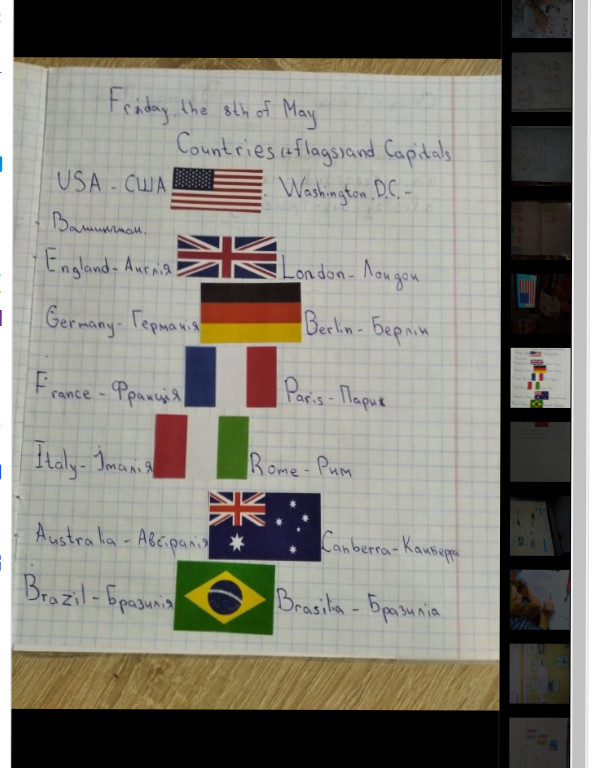 Friday, the 8th of May
Countries (+flags) and Capitals
USA - США Washington, D.C. -
Вашингтон.
England - Англія London - Лондон
Germany - Германія Berlin - Берлін
France - Франція Paris - Париж
Italy - Італія Rome - Рим
Australia - Австралія Canberra - Канберра
Brazil - Бразилія Brasilia - Бразиліа